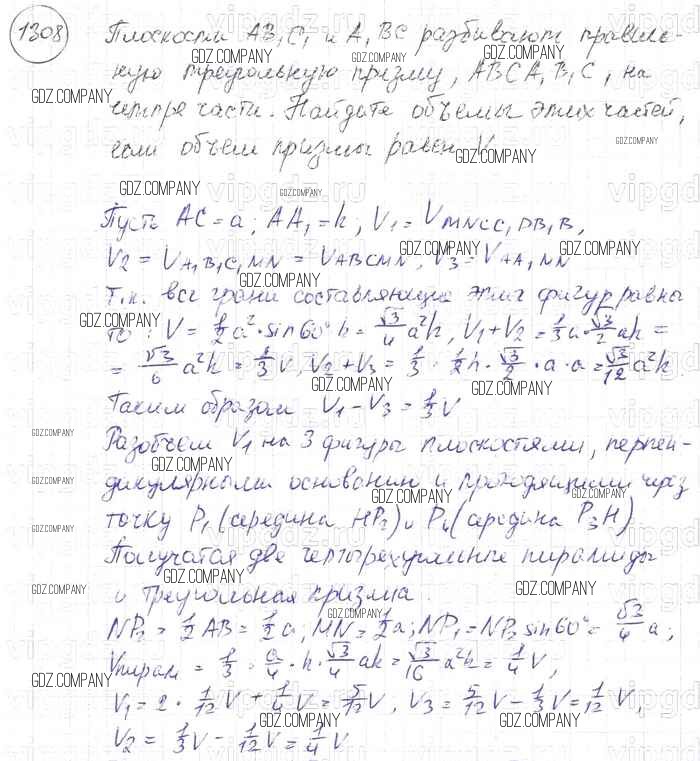 1308
Плоскости AB₁C₁ и A₁BC разбивают правиль-
ную треугольную призму, ABCA₁B₁C₁ на
четыре части. Найдите объемы этих частей,
если объем призмы равен V.
Пусть AC = a; AA₁ = h; V₁ = V MNCC₁DB₁B,
V₂ = V A₁B₁C₁MN = V ABCMN, V₃ = V AA₁MN
Т.к. все грани составляющие этих фигур равны
то: V = 1/2 a² · sin 60° h = √3/4 a²h, V₁ + V₂ = 1/3 a · √3/2 ah =
= √3/6 a²h = 1/3 V, V₂ + V₃ = 1/3 · 1/2 h · √3/2 · a · a = √3/12 a²h
Таким образом V₁ - V₃ = 1/3 V
Разобьем V₁ на 3 фигуры плоскостями, перпен-
дикулярными основанию и проходящими через
точку P₁ (середина HP₂) и P₄ (середина P₃H)
Получатся две четырехугольные пирамиды
и треугольная призма.
NP₂ = 1/2 AB = 1/2 a; MN = 1/2 a; NP₁ = NP₂ sin 60° = √3/4 a;
Vпирам = 1/3 · a/4 · h · √3/4 ah = √3/16 a²h = 1/4 V,
V₁ = 2 · 1/12 V + 1/4 V = 5/12 V, V₃ = 5/12 V - 1/3 V = 1/12 V,
V₂ = 1/3 V - 1/12 V = 1/4 V
GDZ.COMPANY
vipgdz.ru